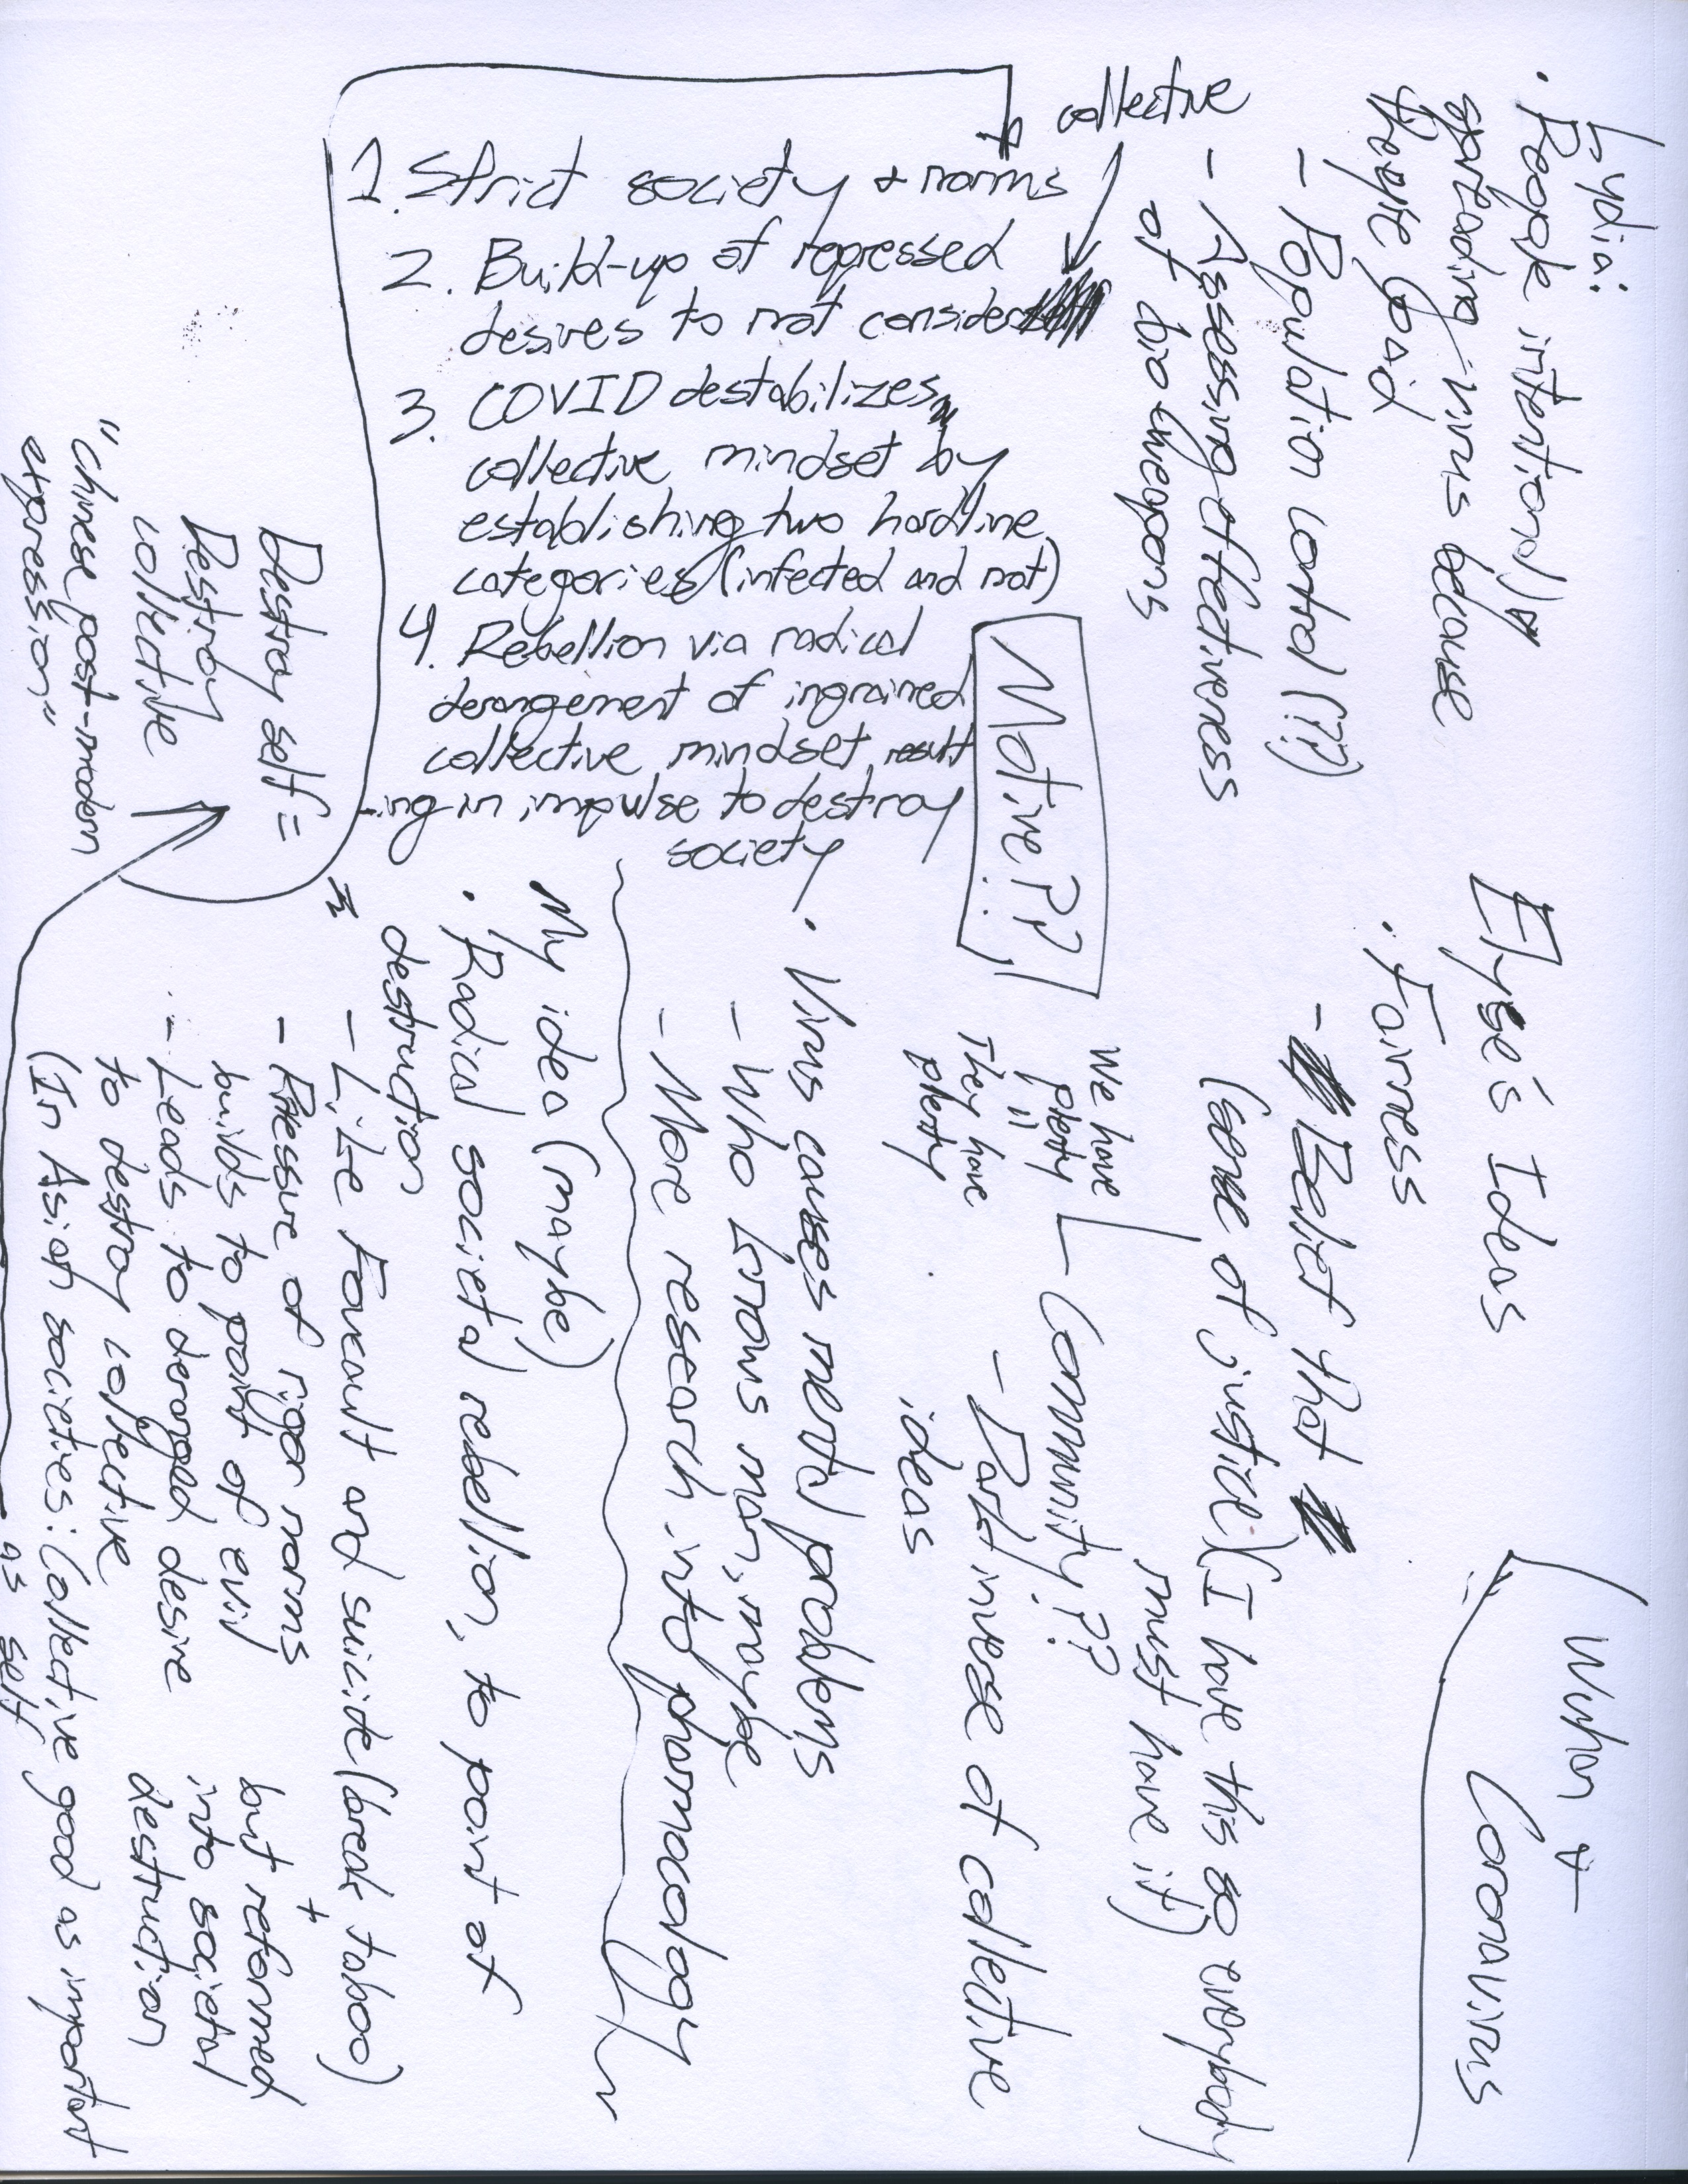 Wuhan +
Coronavirus
Lydia:
• People intentionally
spreading virus because
they're paid
- Population control (??)
- Assessing effectiveness
of bio weapons
Elyse's Ideas
• Fairness
- Belief that
(sense of justice) (I have this so everybody
must have it)
We have
plenty
=
They have
plenty
- Community??
- Dark inverse of collective
ideas
Motive??!
• Virus causes mental problems
- Who knows man, maybe
- More research into pharmacology
collective
1. Strict society + norms
2. Build-up of repressed
desires to not consider
3. COVID destabilizes
collective mindset by
establishing two hardline
categories (infected and not)
4. Rebellion via radical
derangement of ingrained
collective mindset result
-ing in impulse to destroy
society
My idea (maybe)
• Radical societal rebellion, to point of
destruction
- Like Foucault and suicide (break taboo)
- Pressure of rigor norms
builds to point of evil
- Leads to deranged desire
to destroy collective
+
but reformed
into societal
destruction
(In Asian societies: Collective good as important
as self
Destroy self =
Destroy
collective
"chinese post-modern
expression"